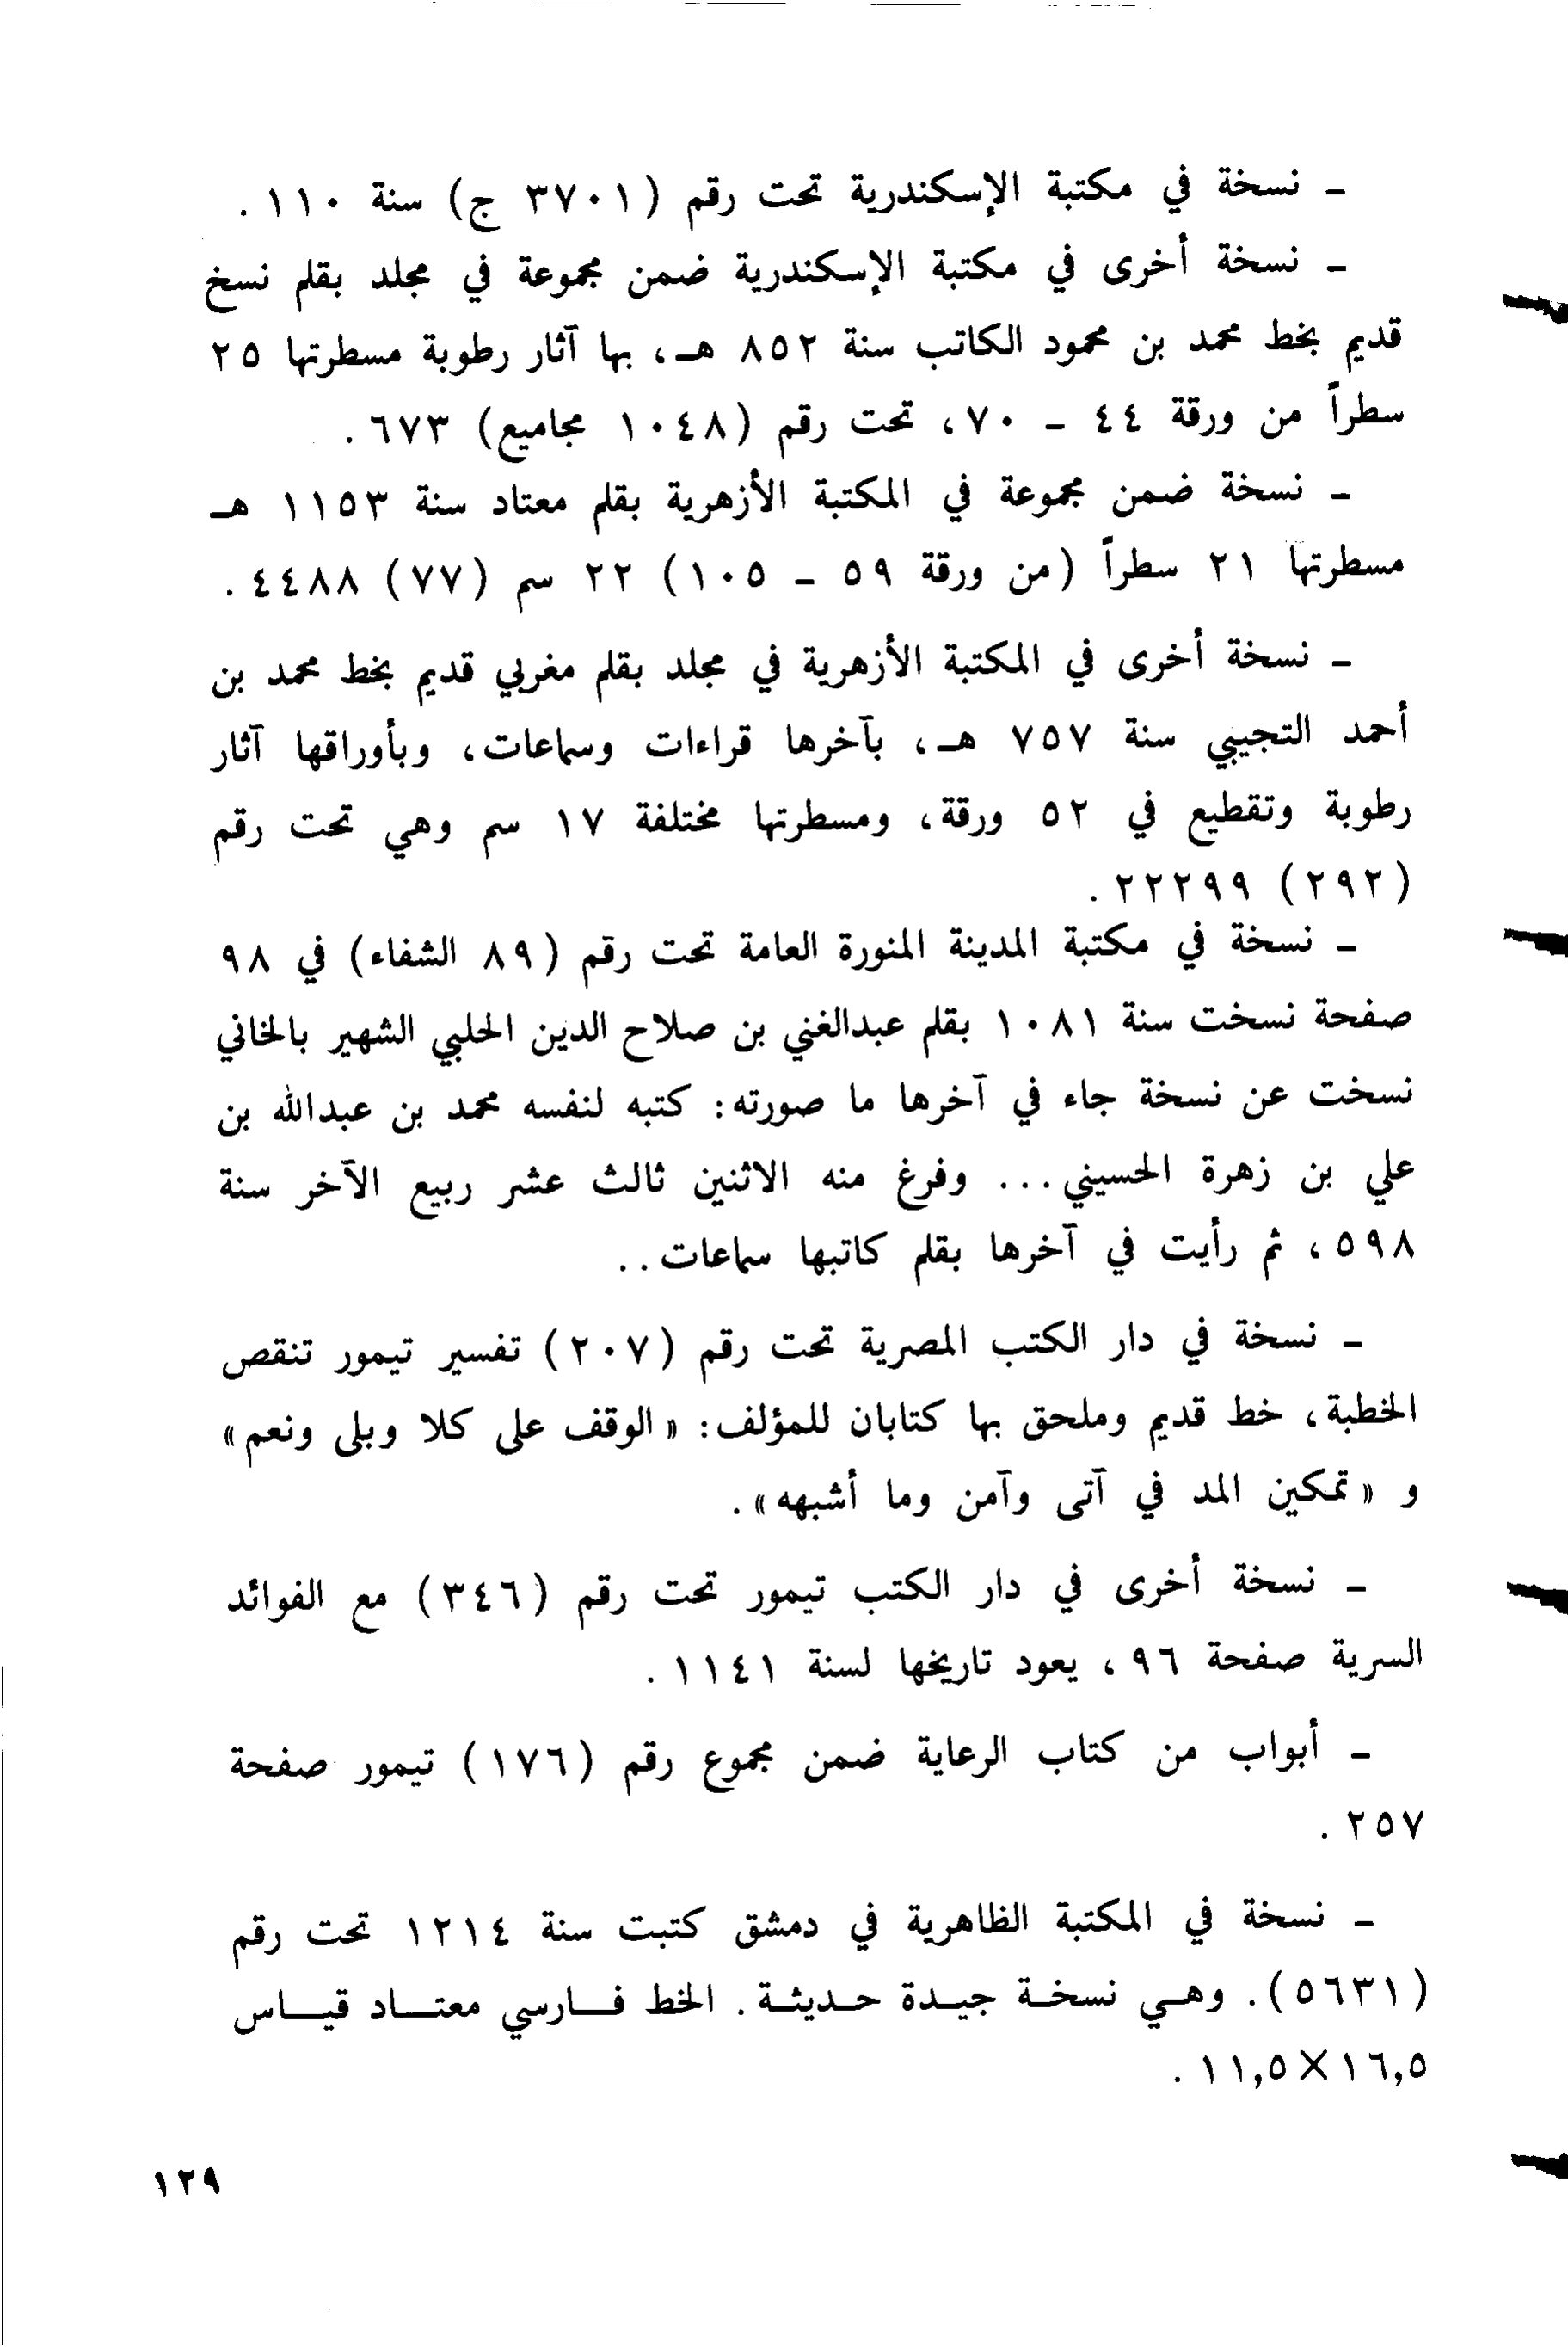 – نسخة في مكتبة الإسكندرية تحت رقم (٣٧٠١ ج) سنة ١١٠ .
– نسخة أخرى في مكتبة الإسكندرية ضمن مجموعة في مجلد بقلم نسخ
قديم بخط محمد بن محمود الكاتب سنة ٨٥٢ هـ، بها آثار رطوبة مسطرتها ٢٥
سطراً من ورقة ٤٤ – ٧٠، تحت رقم (١٠٤٨ مجاميع) ٦٧٣.
– نسخة ضمن مجموعة في المكتبة الأزهرية بقلم معتاد سنة ١١٥٣ هـ
مسطرتها ٢١ سطراً (من ورقة ٥٩ – ١٠٥) ٢٢ سم (٧٧) ٤٤٨٨.
– نسخة أخرى في المكتبة الأزهرية في مجلد بقلم مغربي قديم بخط محمد بن
أحمد التجيبي سنة ٧٥٧ هـ، بآخرها قراءات وسماعات، وبأوراقها آثار
رطوبة وتقطيع في ٥٢ ورقة، ومسطرتها مختلفة ١٧ سم وهي تحت رقم
(٢٩٢) ٢٢٢٩٩.
– نسخة في مكتبة المدينة المنورة العامة تحت رقم (٨٩ الشفاء) في ٩٨
صفحة نسخت سنة ١٠٨١ بقلم عبدالغني بن صلاح الدين الحلبي الشهير بالخاني
نسخت عن نسخة جاء في آخرها ما صورته: كتبه لنفسه محمد بن عبدالله بن
علي بن زهرة الحسيني... وفرغ منه الاثنين ثالث عشر ربيع الآخر سنة
٥٩٨، ثم رأيت في آخرها بقلم كاتبها سماعات..
– نسخة في دار الكتب المصرية تحت رقم (٢٠٧) تفسير تيمور تنقص
الخطبة، خط قديم وملحق بها كتابان للمؤلف: «الوقف على كلا وبلى ونعم»
و «تمكين المد في آتى وآمن وما أشبهه».
– نسخة أخرى في دار الكتب تيمور تحت رقم (٣٤٦) مع الفوائد
السرية صفحة ٩٦، يعود تاريخها لسنة ١١٤١.
– أبواب من كتاب الرعاية ضمن مجموع رقم (١٧٦) تيمور صفحة
٢٥٧.
– نسخة في المكتبة الظاهرية في دمشق كتبت سنة ١٢١٤ تحت رقم
(٥٦٣١). وهي نسخة جيدة حديثة. الخط فارسي معتاد قياس
١٦,٥×١١,٥.
١٢٩